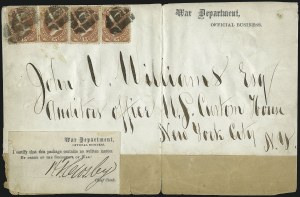 War Department,
OFFICIAL BUSINESS.
John C. Williams Esq
Auditors office U.S. Custom House
New York City N.Y.
War Department,
OFFICIAL BUSINESS.
I certify that this package contains no written matter
By order of the Secretary of War: